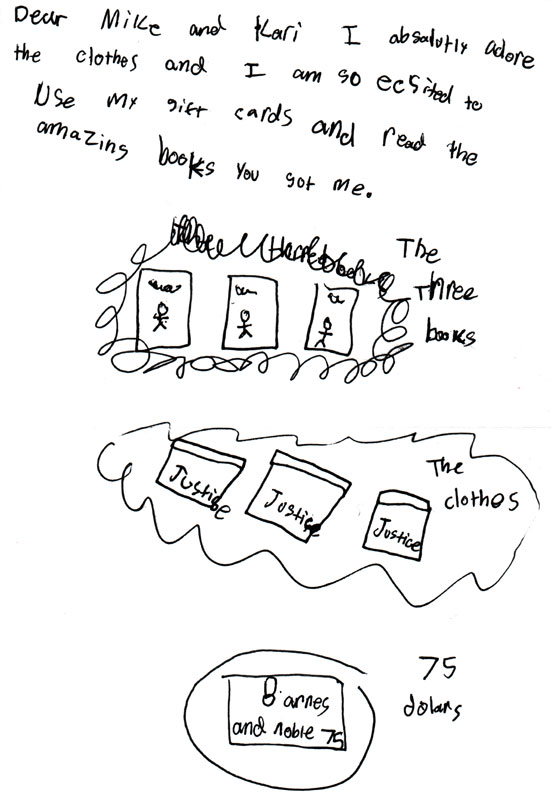 Dear Mike and Kari I absalutly adore
the clothes and I am so ecsited to
Use my gift cards and read the
amazing books you got me.
The
three
books
Justice
Justice
Justice
The
clothes
Barnes
and noble 75
75
dolars